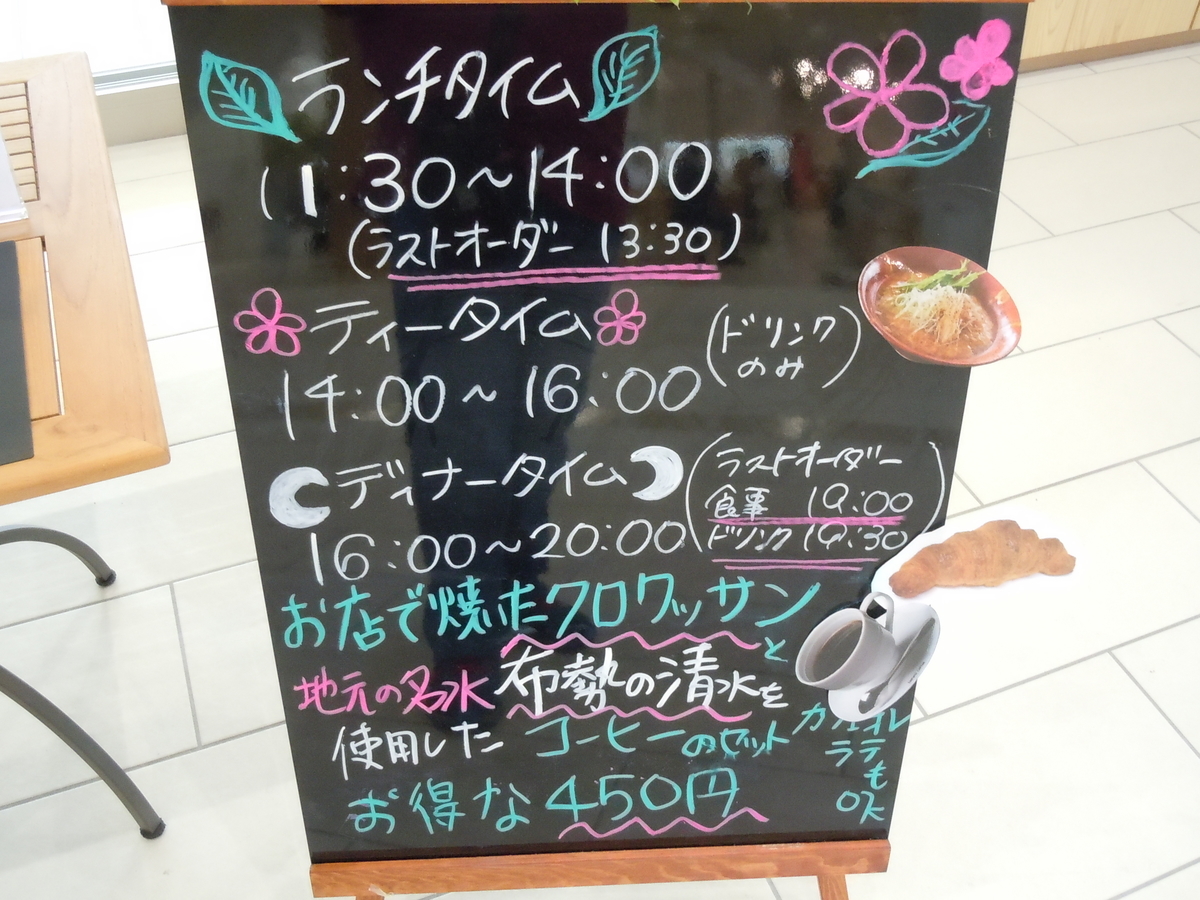 ランチタイム
11:30～14:00
(ラストオーダー 13:30)
ティータイム
(ドリンク
のみ)
14:00～16:00
ディナータイム
(ラストオーダー
食事 19:00
ドリンク 19:30)
16:00～20:00
お店で焼いたクロワッサンと
地元の名水 布勢の清水を
使用した コーヒーのセット
お得な450円
カフェオレ
ラテ
も
OK